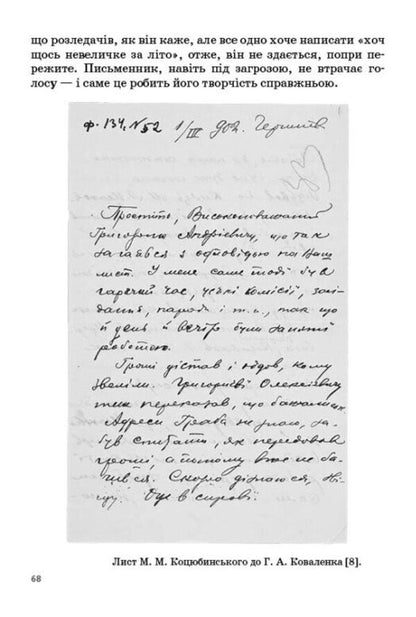 що розледачів, як він каже, але все одно хоче написати «хоч
щось невеличке за літо», отже, він не здається, попри пе-
режите. Письменник, навіть під загрозою, не втрачає го-
лосу — і саме це робить його творчість справжньою.
ф. 134, №52 1/IV 902. Чернигів
Простіть, Високоповажаний
Григорію Андрієвичу, що так
загаявся з одповіддю на Ваш
лист. У мене саме тоді був
гарячий час, усякі комісії, засі-
дання, наради і т. и., так що
й день й вечір були заняті
роботою.
Гроші дістав і оддав, кому
звеліли. Григорієві Олексієвичу
теж переказав, що бажали.
Адреси не знаю, за-
був спитати, як передавав
гроші, а потому вже не ба-
чився. Скоро дізнаюся, на-
пишу.
Лист М. М. Коцюбинського до Г. А. Коваленка [8].
68